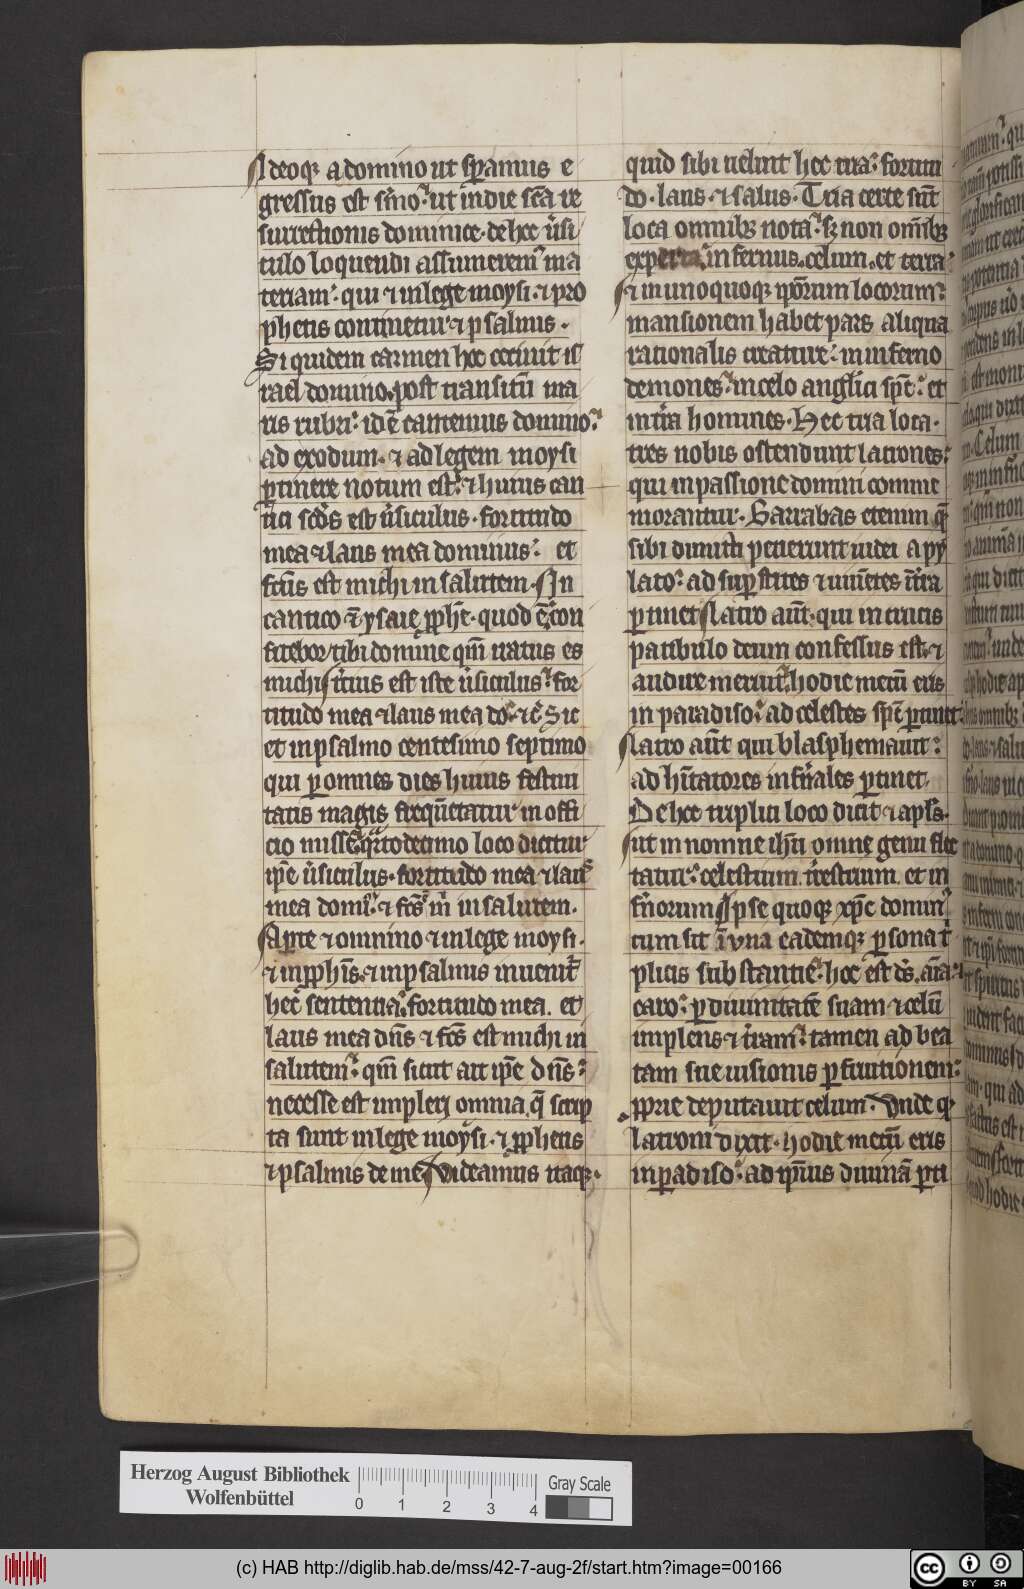 Ideoq; a domino ut speramus e
gressus est sermo. ut in die sca re
surrectionis dominice. de hoc uersi
culo loquendi assumerem ma
teriam. qui et in lege moysi. et pro
phetis continetur et psalmis.
Si quidem carmen hoc cecinit is
rael domino post transitū ma
ris rubri. id ē cantemus domino.
ad exodum. et ad legem moysi
ptinere notum est. et huius can
tici scds est uersiculus. fortitudo
mea et laus mea dominus. et
fcūs est michi in salutem. In
cantico et ysaie pphe. quod ē. con
fitebor tibi domine qm iratus es
michi tcius est iste uersiculus. for
titudo mea et laus mea do. etc. Sic
et in psalmo centesimo septimo
qui p omnes dies huius festiui
tatis magis frequētatur in offi
cio misse. qrto decimo loco dicitur
ipē uersiculus. fortitudo mea et laus
mea domi. et fcs m in salutem.
Aperte et omnino et in lege moysi.
et in pphis. et in psalmis inuenit
hec sententia. fortitudo mea. et
laus mea dns et fcs est michi in
salutem. qm sicut ait ipē dns.
necesse est impleri omnia. q scrip
ta sunt in lege moysi. et pphetis
et psalmis de me. Videamus itaq;.
quid sibi uelint hec tria. fortitu
do. laus. et salus. Tria certe sūt
loca omnib; nota. s; non omīb;
experta. infernus. celum. et terra.
Et in unoquoq; ipsorum locorum.
mansionem habet pars aliqua
rationalis creature. in inferno
demones. in celo anglici spc. et
in tra homines. Hec tria loca.
tres nobis ostendunt latrones.
qui in passione domini comme
morantur. Barrabas etenim q
sibi dimitti petierunt iudei a py
lato. ad supstites et uiuētes i tra
ptinet. latro aūt. qui in crucis
patibulo deum confessus est. et
audire meruit. hodie mecū eris
in paradiso. ad celestes spc ptinet.
latro aūt qui blasphemauit.
ad hītatores infnales ptinet.
De hoc triplici loco dicit et apls.
ut in nomine ihū omne genu flec
tatur. celestium. trestrium. et in
fnorum. Ipse quoq; xpc dominus
cum sit in una eademq; psona tri
plicis substantie. hoc est ds. aīa.
caro. p diuinitatē suam et celū
implens et tram. tamen ad bea
tam sue uisionis pfruitionem.
pprie deputauit celum. Unde q;
latroni dixit. hodie mecū eris
in padiso. ad ipsius diuinā pti
Herzog August Bibliothek
Wolfenbüttel
0 1 2 3 4
Gray Scale
(c) HAB http://diglib.hab.de/mss/42-7-aug-2f/start.htm?image=00166
cc BY SA